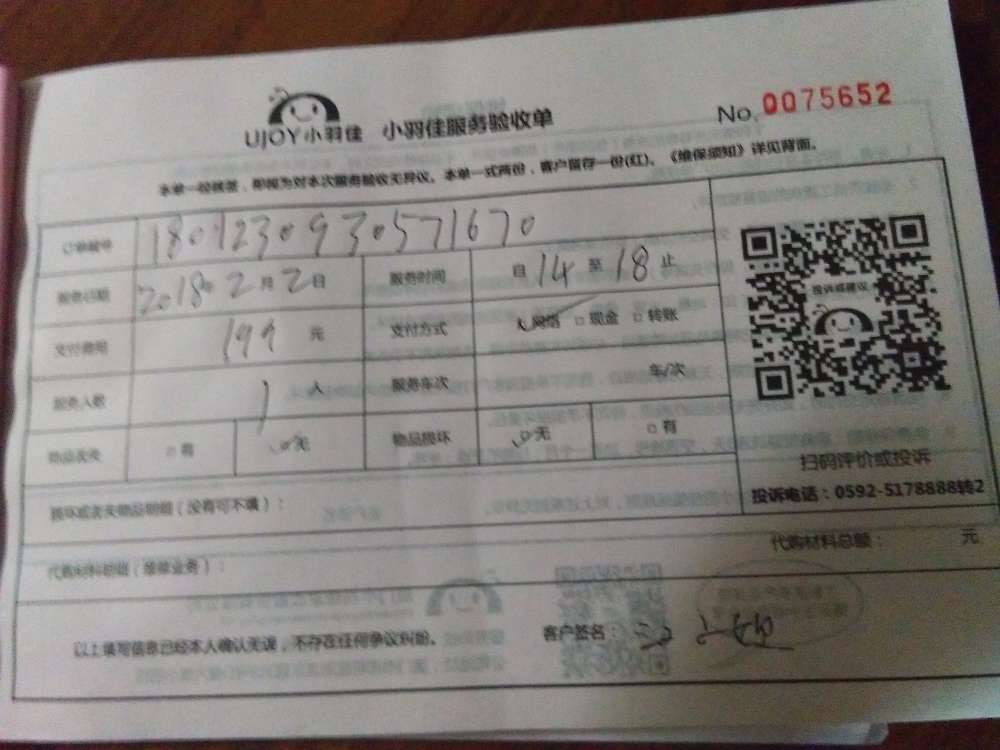 UJOY小羽佳 小羽佳服务验收单
No.0075652
本单一经核签，即视为对本次服务验收无异议。本单一式两份，客户留存一份(红)。《维保须知》详见背面。
订单编号 180123093057167​0
服务日期 2018年2月2日 服务时间 自14至18止
支付费用 199元 支付方式 网络 现金 转账
服务人数 1人 服务车次 车/次
物品丢失 有 无 物品损坏 无 有
投诉或建议
扫码评价或投诉
投诉电话：0592-5178888转2
损坏或丢失物品明细（没有可不填）：
代购材料明细（维修业务）：
代购材料总额： 元
以上填写信息已经本人确认无误，不存在任何争议纠纷。
客户签名：